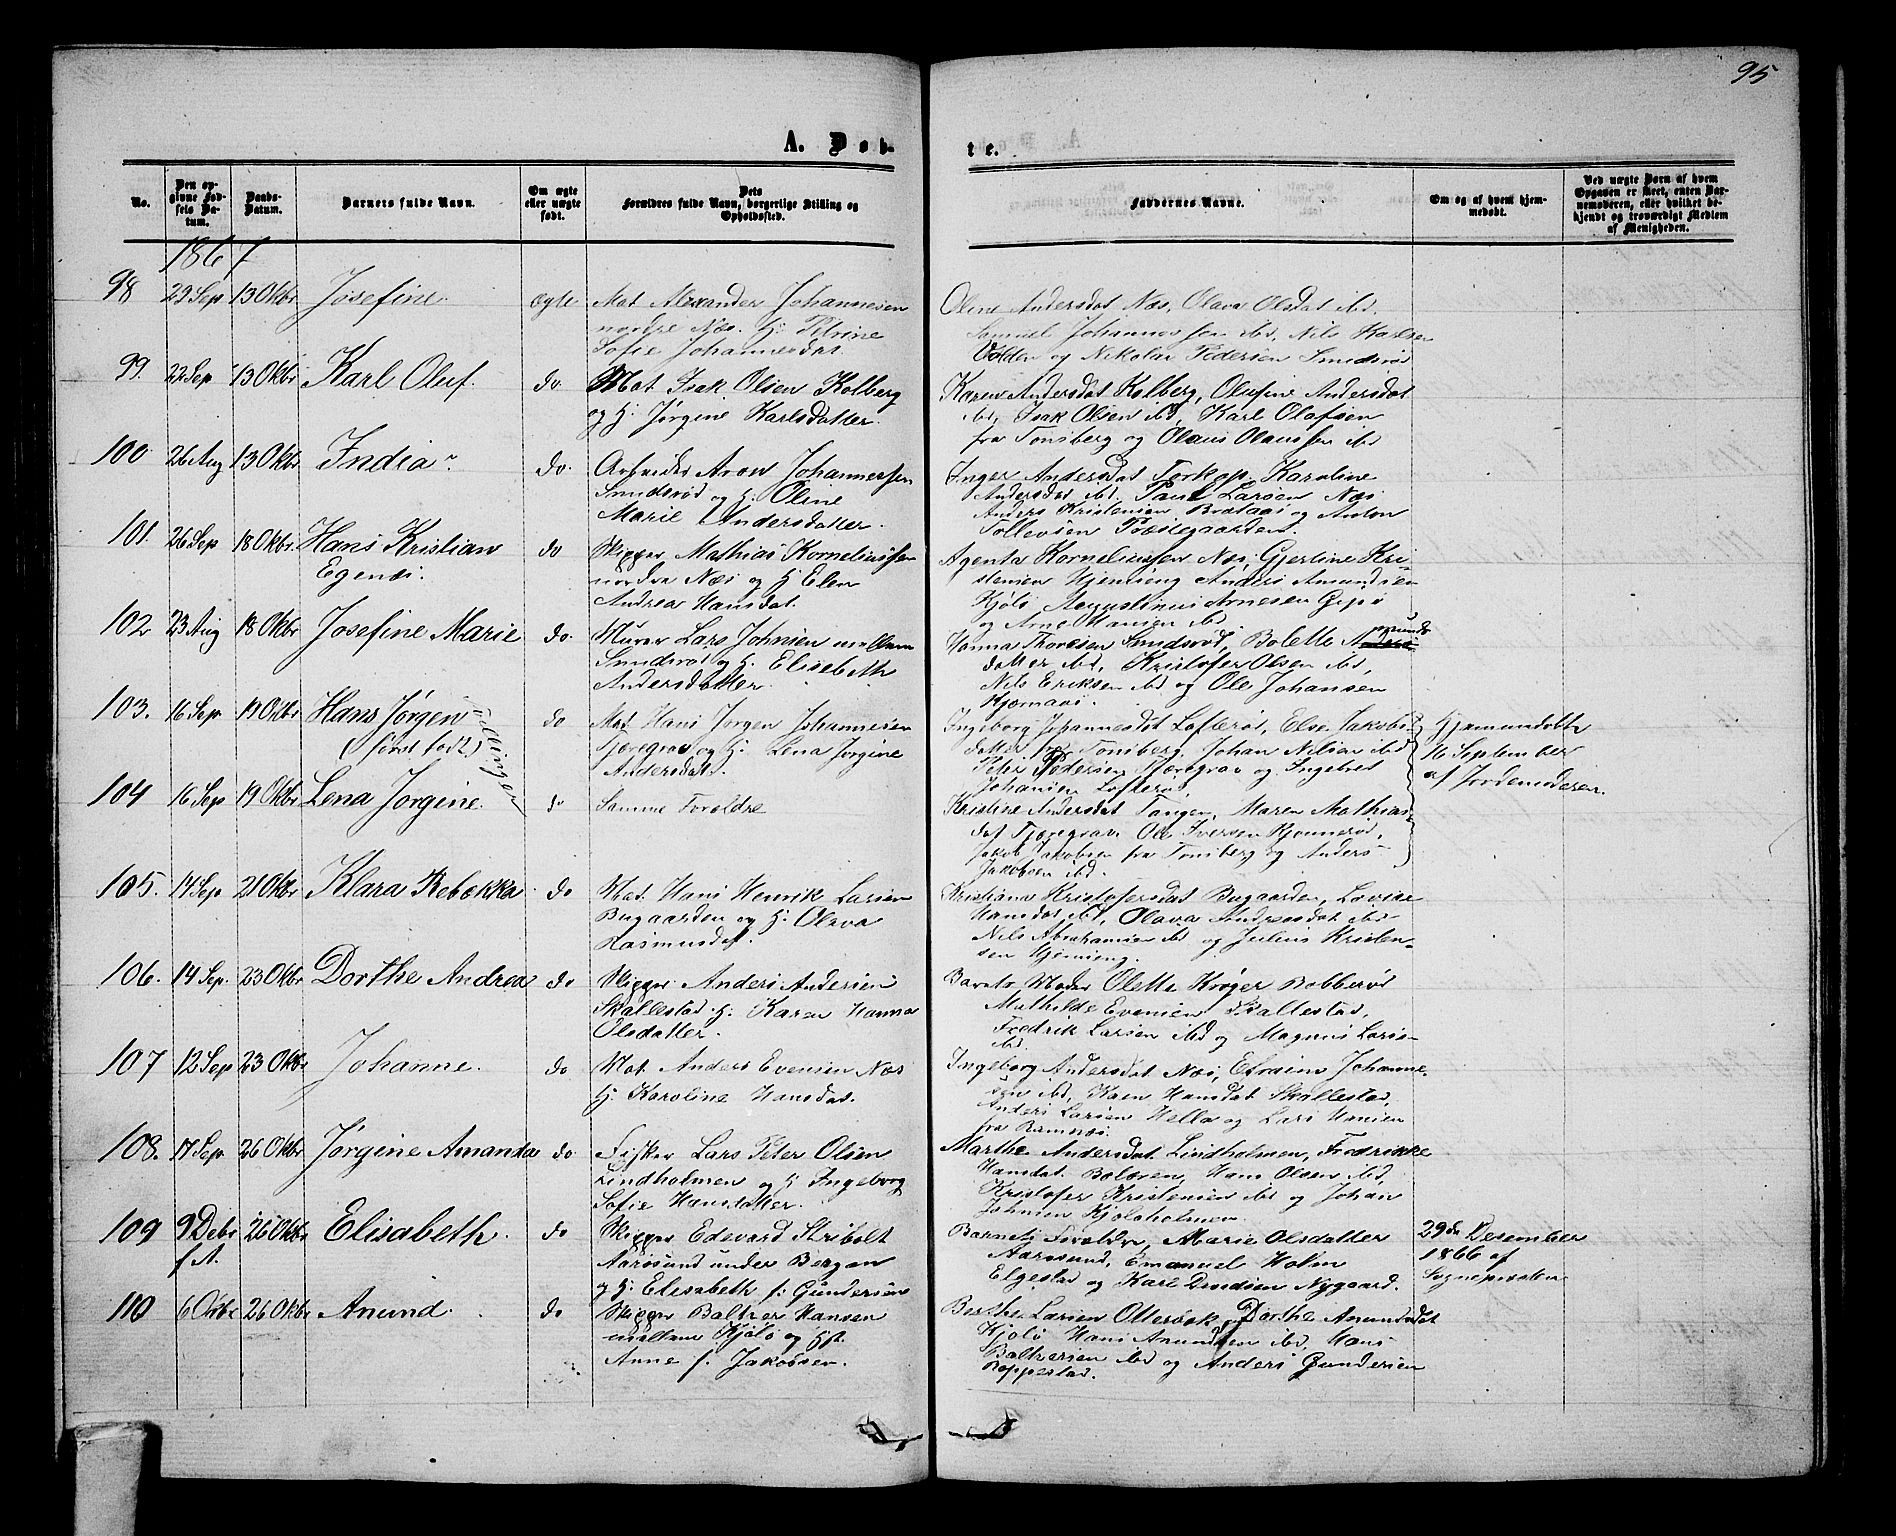 95
A. Døb-
te.
No.
Den op-
givne Fød-
sels Da-
tum.
Daabs-
Datum.
Barnets fulde Navn.
Om ægte
eller uægte
født.
Dets
Forældres fulde Navn, borgerlige Stilling og
Opholdssted.
Faddernes Navne.
Om og af hvem hjem-
medøbt.
Ved uægte Børn af hvem
Opgaven er skeet, enten Bar-
nemoderen, eller hvilket be-
kjendt og troværdigt Medlem
af Menigheden.
1867
98 29 Sep 13 Oktbr Josefine. ægte Mat Alexander Johannesen
nordre Næs. H: Petrine
Sofie Johannesdat.
Oline Andersdat Næs, Olava Olsdat ibd.
Samuel Johannessen ibd, Nils Karlsen
Volden og Nikolai Pedersen Smidsrød
99. 22 Sep 13 Oktbr Karl Oluf. do. Mat Isak Olsen Kolberg
og H: Jørgine Karlsdatter.
Karen Andersdat Kolberg, Olufine Andersdat
ibd, Isak Olsen ibd, Karl Olafsen
fra Tønsberg og Olaus Olaussen ibd
100 26 Aug 13 Oktbr India. do. Arbeider Aron Johannessen
Smidsrød og H: Oline
Marie Andersdatter.
Inger Andersdat Torkop, Karoline
Andersdat ibd, Paul Larsen Næs
Anders Kristensen Brataas og Anton
Tollevsen Præstegaarden.
101. 26 Sep 18 Oktbr. Hans Kristian
Egenæs. do Skipper Mathias Korneliussen
nordre Næs og H Elen
Andrea Hansdat.
Agenta Korneliussen Næs, Gjertine Kri-
stensen Hjemseng Anders Amundsen
Kjøle Augustinus Arnesen Gipø
og Arne Hansen ibd
102 23 Aug 18 Oktbr Josefine Marie do. Murer Lars Johnsen mellem
Smidsrød og H. Elisabeth
Andersdatter.
Hanna Thoresen Smidsrød, Bolette Amunds
datter ibd, Kristofer Olsen ibd,
Nils Eriksen ibd og Ole Johansen
Kjærnaas.
103. 16 Sep 19 Oktbr Hans Jørgen
(først født) Tvillinger do Mat. Hans Jørgen Johannesen
Tjæregrav og H: Lena Jørgine
Andersdat.
Ingeborg Johannesdat Lofterød, Else Jakobs-
datter fra Tønsberg. Johan Nilsen ibd
Peter Pedersen Tjæregrav og Ingebret
Johansen Lofterød.
Hjemmedøbte
16 September
af Jordemoderen.
104 16 Sep 19 Oktbr Lena Jørgine. do Samme Foreldre
Kristine Andersdat Tangen, Maren Mathias-
dat Tjæregrav Ole Iversen Rønnerød,
Jakob Jakobsen fra Tønsberg og Anders
Jakobsen ibd.
105. 14 Sep 21 Oktbr Klara Rebækka. do Mat. Hans Henrik Larsen
Bugaarden og H: Olava
Rasmusdat.
Kristiana Kristofersdat Bugaarden, Lovise
Hansdat ibd, Olava Andreasdat ibd
Nils Abrahamsen ibd og Julius Kristen-
sen Hjemseng.
106. 14 Sep. 23 Oktbr Dorthe Andrea do Skipper Anders Andersen
Skallestad H: Karen Hanna
Olsdatter.
Barnets Moder Olette Krøger Bobberød
Mathilde Evensen Skallestad,
Fredrik Larsen ibd og Magnus Larsen
ibd.
107 12 Sep 23 Oktbr Johanne. do Mat Anders Evensen Næs
H: Karoline Hansdat.
Ingeborg Andersdat Næs, Efraim Johanne-
sen ibd, Karen Hansdat Skallestad,
Anders Larsen Hella og Lars Hansen
fra Ramnæs.
108. 17 Sep 26 Oktbr Jørgine Amanda do. Fisker Lars Peter Olsen
Lindholmen og H Ingeborg
Sofie Hansdatter.
Marthe Andersdat Lindholmen, Fredrikke
Hansdat Bolæren, Hans Olsen ibd,
Kristofer Kristensen ibd og Johan
Johnsen Kjøleholmen.
109 9 Debr
f A. 26 Oktbr Elisabeth. do Skipper Edevard Stribolt
Aarøsund under Bergan
og H: Elisabeth f: Gundersen
Barnets Foreldre, Marie Olsdatter
Aarøsund, Emanuel Holm
Elgestad og Karl Davidsen Nygaard.
29de Desember
1866 af
Sognepresten
110 6 Oktbr 26 Oktbr Anund. do Skipper Baltzer Hansen
mellem Kjøle og H:
Anne f. Jakobsen.
Berthe Larsen Otterbæk, Dorthe Anundsdat
Kjøle Hans Anundsen ibd, Hans
Baltzersen ibd og Anders Gundersen
Roppestad.